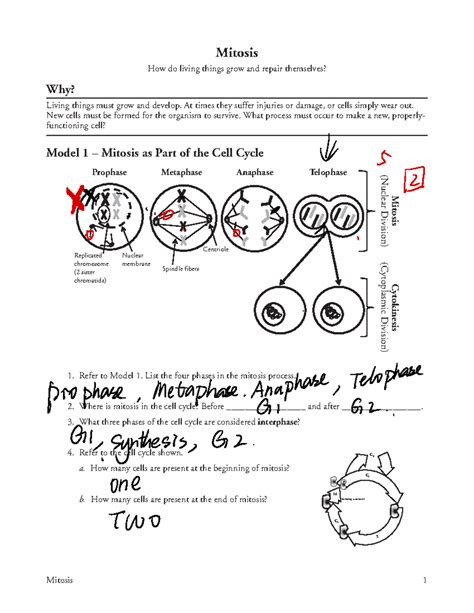 Mitosis
How do living things grow and repair themselves?
Why?
Living things must grow and develop. At times they suffer injuries or damage, or cells simply wear out.
New cells must be formed for the organism to survive. What process must occur to make a new, properly-
functioning cell?
Model 1 – Mitosis as Part of the Cell Cycle
5
2
Prophase Metaphase Anaphase Telophase
Mitosis
(Nuclear Division)
Replicated
chromosome
(2 sister
chromatids)
Nuclear
membrane
Centriole
Spindle fibers
Cytokinesis
(Cytoplasmic Division)
1. Refer to Model 1. List the four phases in the mitosis process.
prophase, Metaphase. Anaphase, Telophase
2. Where is mitosis in the cell cycle? Before G1 and after G2.
3. What three phases of the cell cycle are considered interphase?
G1, synthesis, G2.
4. Refer to the cell cycle shown.
a. How many cells are present at the beginning of mitosis?
one
b. How many cells are present at the end of mitosis?
TWO
Mitosis 1